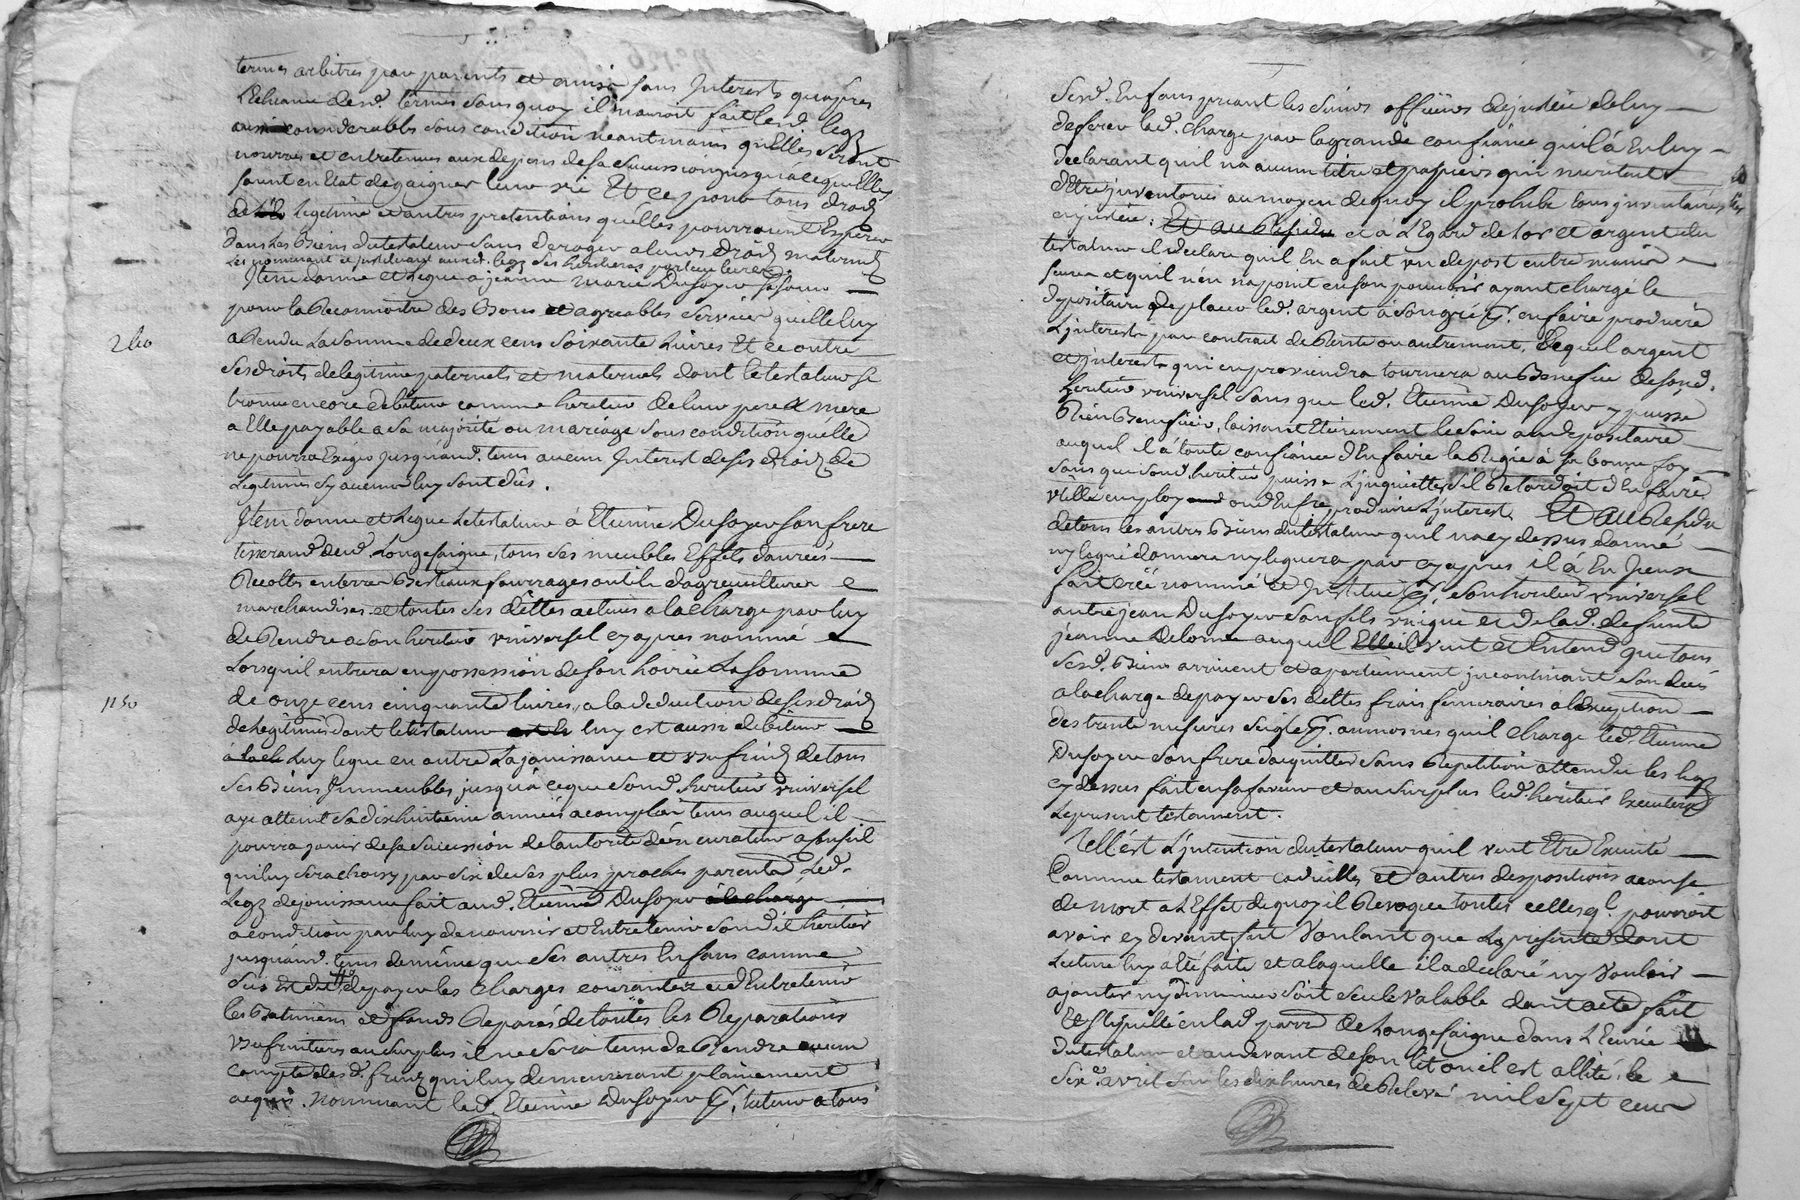 termes arbitrés par parents et amis sans Interests qu'apres
L'Echeance desd. termes sans quoy il n'auroit fait lesd. legz
aussi considerables sous condition néantmoins qu'Elles seront
nourries et entretenues aux depens de sa succession jusqu'a ce qu'Elles
soint en Etat de gaigner leur vie Et ce pour tous droits
de legitime et autres pretentions qu'elles pourroient Esperer
dans les Biens du testateur sans deroger a leurs droits maternels
Les nommant et instituant aud. legz ses heritieres particulieres
Item donne et legue a jeanne marie Dusoyer sa soeur
pour la Reconnoitre des Bons et agreables services qu'elle luy
260
a Rendu La somme de deux cens soixante Livres Et ce outre
ses droits de legitime paternels et maternels dont le testateur se
trouve encore debiteur comme heritier de leur pere et mere
a Elle payable a sa majorité ou mariage sous condition quelle
ne pourra Exiger jusqu'aud. tems aucun Interest de ses droits de
Legitimes sy aucuns luy sont dûs.
Item donne et Legue Le testateur à Etienne Dusoyer son frere
tisserand dud. Longesaigne, tous ses meubles Effets danrées
Recoltes en terre Bestiaux fourrages outils d'agreculture
marchandises et toutes ses dettes actives a la charge par luy
de Rendre a son heritier vniversel cy apres nommé
Lorsqu'il entrera en possession de son hoirie La somme
1150
de onze cens cinquante livres, a la deduction de ses droits
de Legitimes dont le testateur luy est aussi debiteur
Luy legue en outre La jouissance et vsufruit de tous
ses Biens Immeubles jusqu'à ce que sond. heritier vniversel
aye atteint sa dixhuitieme année acomplie tems auquel il
pourra jouir de sa succession de l'autorité d'un curateur
qui luy sera choisy par six de ses plus proches parents Led.
Legz de jouissance fait aud. Etienne Dusoyer a la charge
a condition par luy de nourrir et Entretenir sond. heritier
jusqu'aud. tems de même que ses autres Enfans comme
sus Est dit de payer les Charges courantes et d'Entretenir
les Batimens et fonds Reparés de toutes les Reparations
vsufruitiers au surplus il ne sera tenu de Rendre aucun
compte desd. fruits qui luy demeureront plainement
acquis. Nommant led. Etienne Dusoyer tuteur a tous
sesd. Enfans priant les sieurs officiers de justice de luy
deferer lad. charge par la grande confiance qu'il à En luy
declarant qu'il n'a aucun titre et papiers qui meritent
d'Etre jnventoriés au moyen de quoy il prohibe tous jnventaires
en justice: Et au Residu et a L'Egard de l'or et argent du
testateur il declare qu'il En a fait un depost entre mains
seures et quil n'en n'a point en son pouvoir ayant chargé le
depositaire de placer led. argent à son gré en faire produire
L'jnterest par contract de Rente ou autrement, Lequel argent
et jnterests qui en proviendra tournera au Benefice de sond.
heritier vniversel sans que led. Etienne Dusoyer y puisse
Rien Beneficier, laissant Entierement le soin au depositaire
auquel il a toute confiance d'En faire la Regie à sa bonne foy
sans que sond. heritier puisse L'jnquietter s'il Retardoit d'En faire
vtille employ ou d'En fre produire L'jnterest Et au Residu
de tous les autres Biens du testateur qu'il n'a cy dessus donné
ny legué donnera ny leguera par cy apres il à En jceux
fait Créé nommé et Institué son heritier vniversel
autre jean Dusoyer son fils vnique et de lad. defunte
jeanne Delorme auquel il veut et Entend que tous
sesd. Biens arrivent et apartiennent jncontinant son decés
a la charge de payer ses dettes frais funeraires a L'exception
des trente mesures seigle aumosnes qu'il charge led. Etienne
Dusoyer son frere d'acquitter sans Repetition attendu les legz
cy dessus fait en sa faveur et au surplus led. heritier Executera
Le present testament.
Tell'est L'jntention du testateur qu'il veut Etre Executé
Comme testament codicille et autres dispositions a cause
de mort a L'Effet de quoy il Revoque toutes celles q.l pourroit
avoir cy devant fait Voulant que La presente dont
Lecture luy a Eté faite et a laquelle il a declaré ny Vouloir
ajouter ny diminuer soit seule Valable dont acte fait
Et Stipullé en lad. parr. de Longesaigne dans L'Ecurie
du testateur et au devant de son lit ou il est allité, le
six.e avril sur les dix heures de Relevé mil sept cens